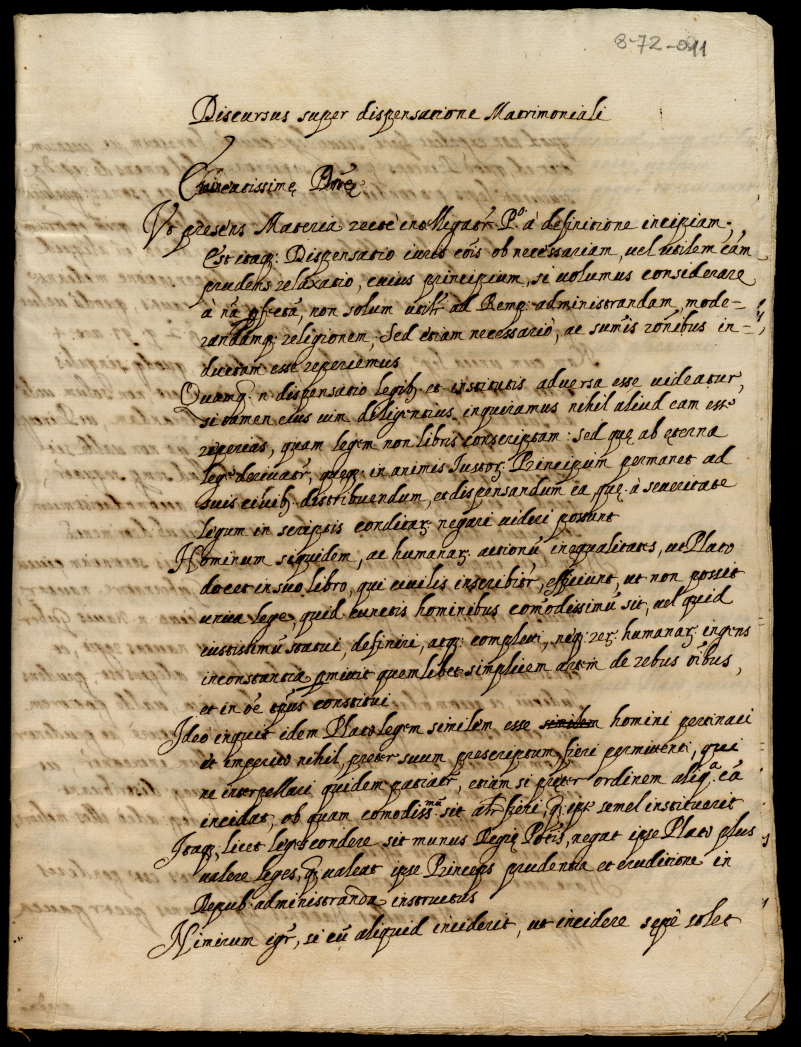 8-72-011
Discursus super dispensatione Matrimoniali
Vt presens Materia rectè intelligatr. Po. à definitione incipiam.
Est itaq: Dispensatio iuris cõis ob necessariam, uel utilem cãm
prudens relaxatio, cuius principium, si uolumus considerare
à nã non solum utilr ad Remp: administrandam, mode-
randamq; religionem, Sed etiam necessariò, ac sumis rõnibus in-
ductam esse reperiemus
Quamq. n. dispensatio legib; et institutis aduersa esse uideatur,
si tamen eius uim diligentius inquiramus nihil aliud eam esse
reperies, quam legem non libris conscriptam: sed quę ab ęterna
lege deriuatr, quęq; in animis Iustor; Principum permanet ad
suis ciuib; distribuendum, et dispensandum ea quę à seueritate
legum in scriptis conditar; negari uideri possunt
Hominum siquidem, ac humanar; actionũ inęqualitates, ut Plato
docet in suo libro, qui ciuilis inscribitr, efficiunt, ut non possit
unica lege, quid cunctis hominibus comodissimũ sit, uel quid
iustissimũ statui, definiri, atq; complecti, neq; rer; humanar; ingens
inconstantia pmittit quemlibet simplicem artem de rebus oĩbus,
et in oẽ tp̃us constitui
Ideo inquit idem Plato legem similem esse similem homini pertinaci
et imperito nihil, pręter suum prescriptum, fieri permittenti, qui
ne interpellari quidem patiatr, etiam si pręter ordinem aliqa. cã
incidat, ob quam comodissma. sit alr fieri, q. ipse semel instituerit
Itaq; licet leges condere sit munus Regię Potis, negat ipse Plato plus
ualere leges, q. ualeat ipse Princeps prudentia et eruditione in
Repub. administranda instructus
Nimirum igr, si cũ aliquid inciderit, ut incidere sępè solet